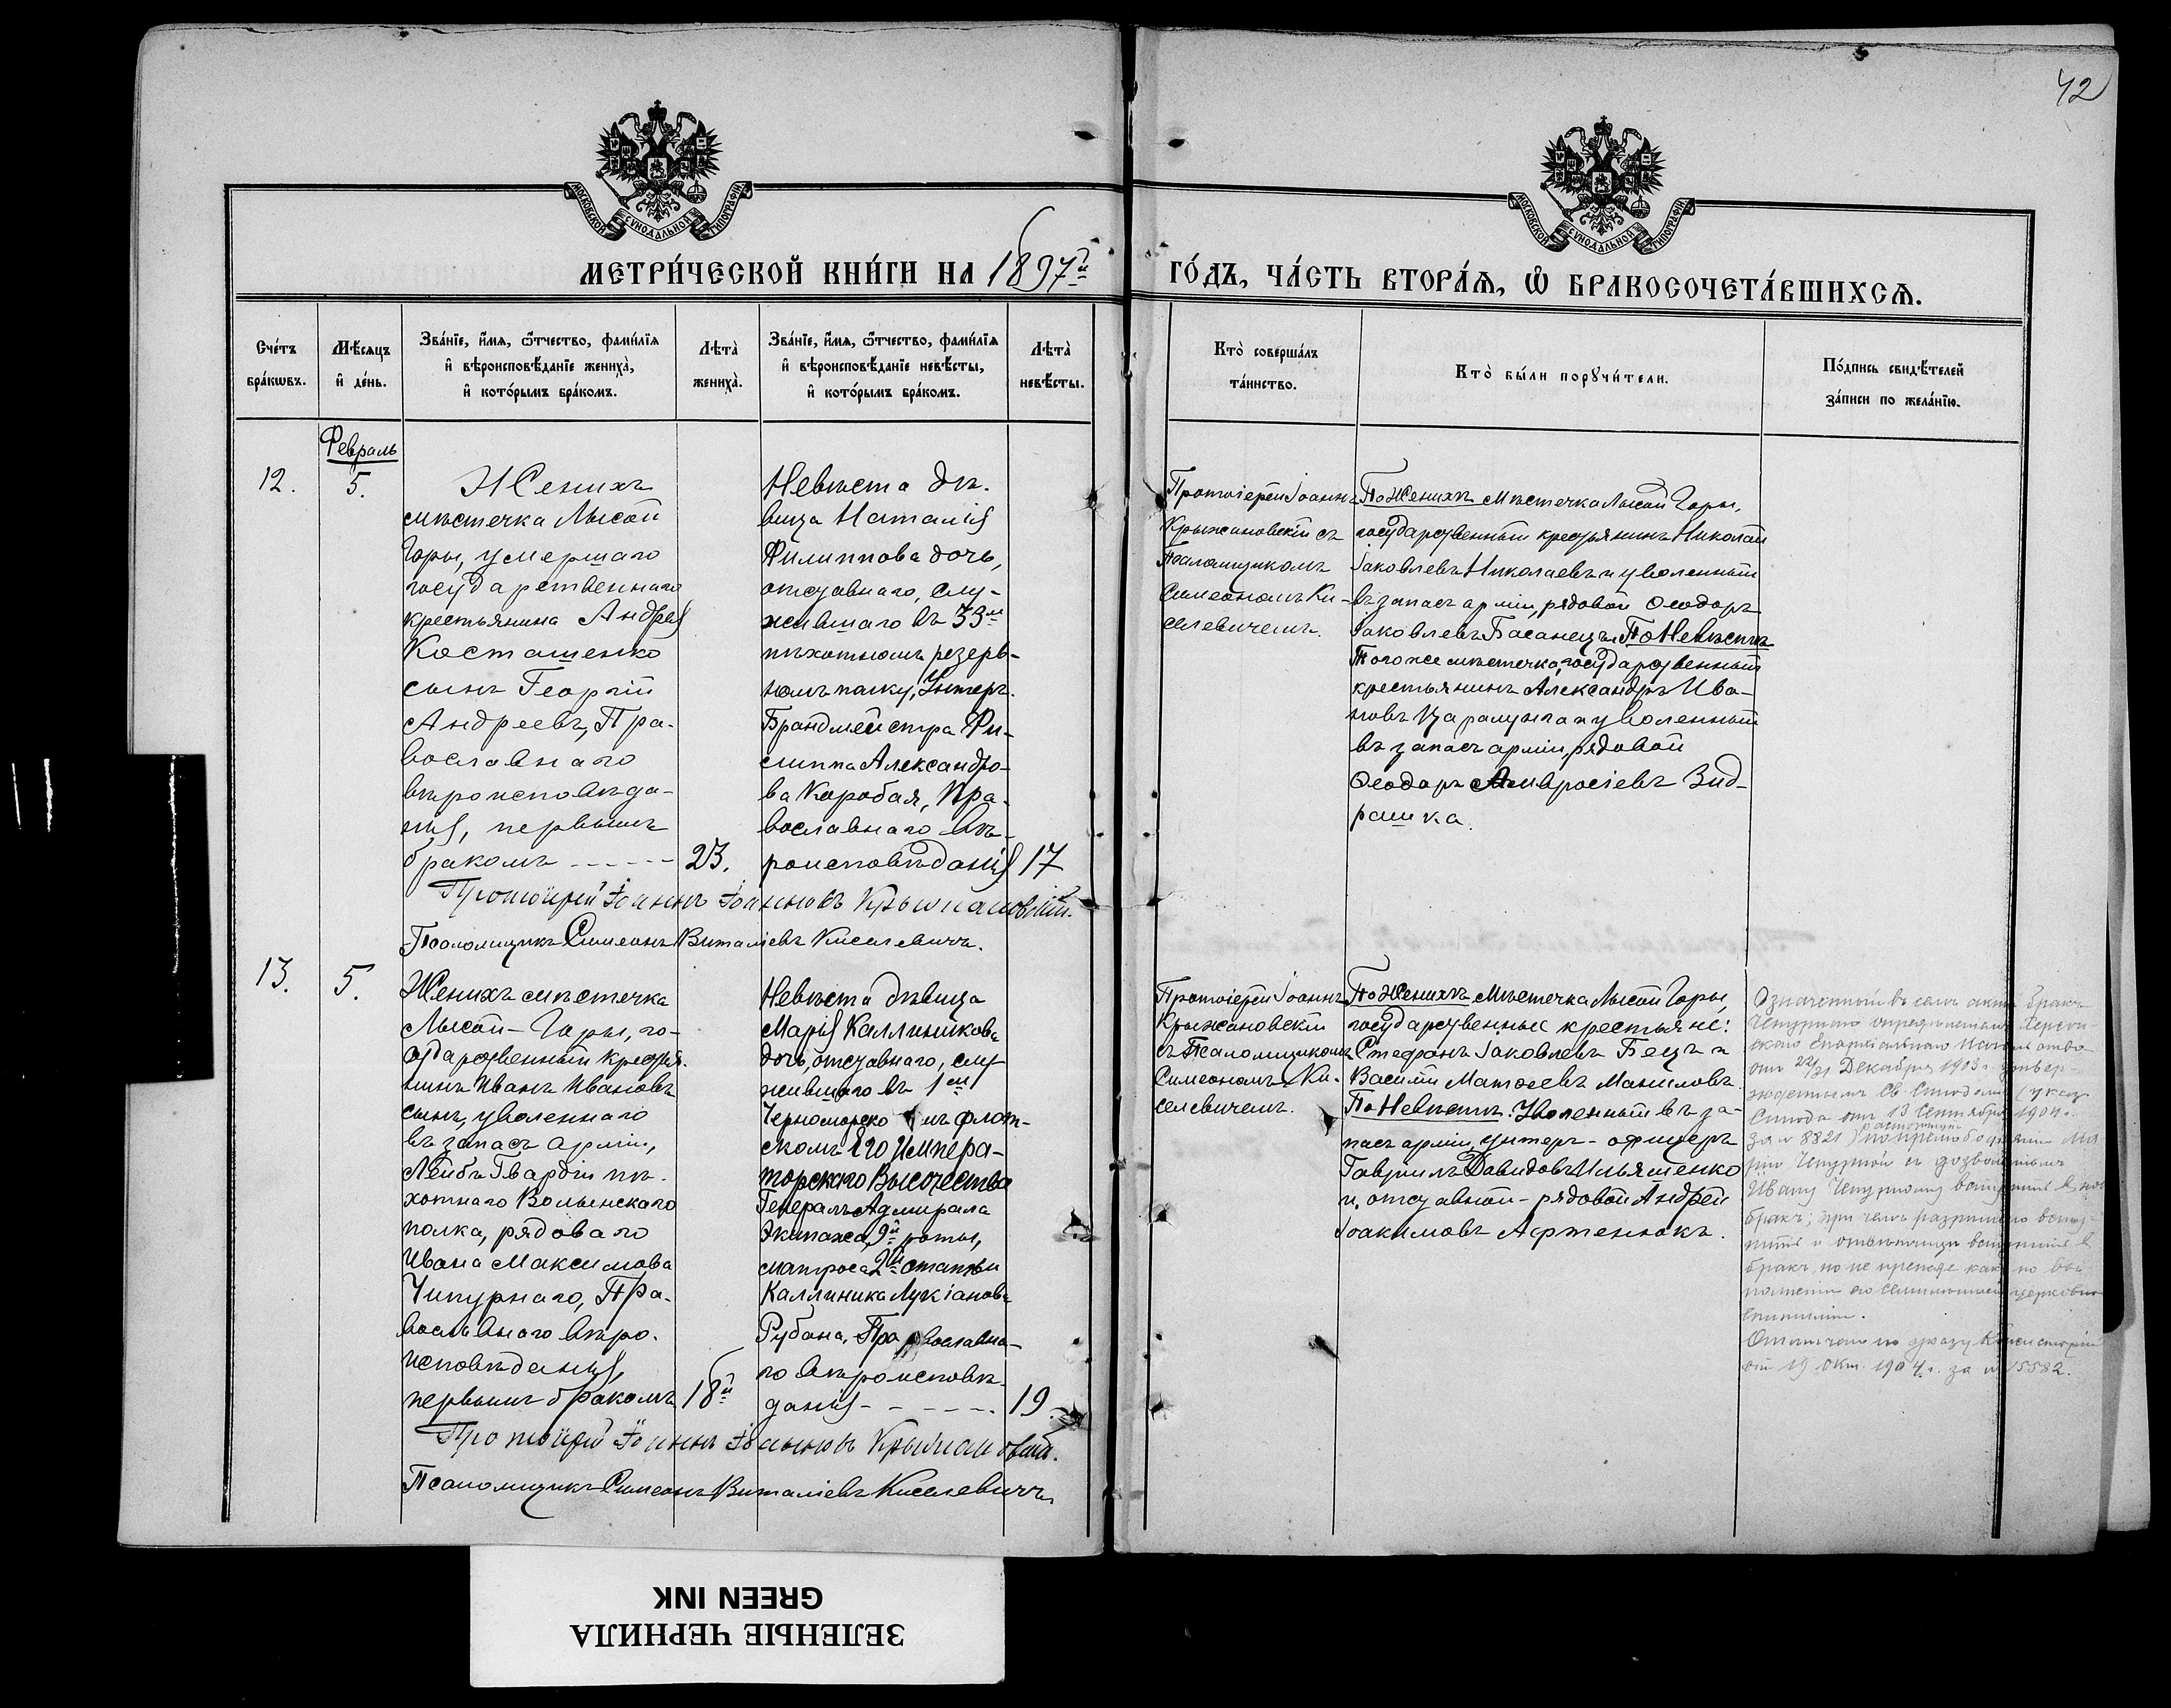 42
МОСКОВСКОЙ СУНОДАЛЬНОЙ ТИПОГРАФІИ
МОСКОВСКОЙ СУНОДАЛЬНОЙ ТИПОГРАФІИ
МЕТРИ́ЧЕСКОЙ КНИ́ГИ НА 1897й
ГО́ДЪ, ЧА́СТЬ ВТОРА́Ѧ, Ѡ҆ БРАКОСОЧЕТА́ВШИХСѦ.
Сче́тъ
бра́кѡвъ.
Мѣ́сѧцъ
и҆ де́нь.
Зва́нїе, и҆́мѧ, ѻ҆́тчество, фами́лїѧ
и҆ вѣроисповѣ́данїе жениха̀,
и҆ кото́рымъ бра́комъ.
Лѣта̀
жениха̀.
Зва́нїе, и҆́мѧ, ѻ҆́тчество, фами́лїѧ
и҆ вѣроисповѣ́данїе невѣ́сты,
и҆ кото́рымъ бра́комъ.
Лѣта̀
невѣ́сты.
Кто̀ соверша́лъ
та́инство.
Кто̀ бы́ли порꙋчи́тели.
По́дпись свидѣ́телей
за́писи по жела́нїю.
Февраль
12.
5.
Женихъ
мѣстечка Лысой
Горы, умершаго
государственнаго
крестьянина Андрея
Косташенко
сынъ Георгій
Андреевъ, Пра-
вославнаго
вѣроисповѣда-
нія, первымъ
бракомъ -----
23.
Невѣста дѣ-
вица Наталія
Филиппова дочь,
отставнаго, слу-
жившаго въ 33м
пѣхотномъ резерв-
номъ полку, Унтеръ-
Брандмейстра Фи-
липпа Александро-
ва Коробая, Пра-
вославнаго вѣ-
роисповѣданія
17
Протоіерей Іоаннъ
Крыжановскій съ
Псаломщикомъ
Симеономъ Ки-
селевичемъ.
По Женихѣ мѣстечка Лысой Горы,
государственный крестьянинъ Николай
Іаковлевъ Николаевъ и уволенный
въ запасъ арміи, рядовой Ѳеодоръ
Іаковлевъ Басанецъ. По Невѣстѣ
Того же мѣстечка, государственный
крестьянинъ Александръ Ива-
новъ Царалунга и уволенный
въ запасъ арміи, рядовой
Ѳеодоръ Амвросіевъ Вид-
рашка.
Протоіерей Іоаннъ Іоанновъ Крыжановскій.
Псаломщикъ Симеонъ Виталіевъ Киселевичъ.
13.
5.
Женихъ мѣстечка
Лысой-Горы, го-
сударственный крестья-
нинъ Иванъ Ивановъ
сынъ, уволеннаго
въ запасъ арміи,
Лейбъ Гвардіи пѣ-
хотнаго Волынскаго
полка, рядоваго
Ивана Максимова
Чипурнаго, Пра-
вославнаго вѣро-
исповѣданія,
первымъ бракомъ
18й
Невѣста дѣвица
Марія Каллиникова
дочь, отставнаго, слу-
жившаго въ 1м
Черноморскомъ флот-
скомъ Его Импера-
торскаго Высочества
Генералъ Адмирала
Экипажа, 9й роты,
матроса 2й статьи
Каллиника Лукіанова
Рубана, Православна-
го вѣроисповѣ-
данія - - - - -
19.
Протоіерей Іоаннъ
Крыжановскій
съ Псаломщикомъ
Симеономъ Ки-
селевичемъ.
По Женихѣ Мѣстечка Лысой Горы,
государственные крестьяне:
Стефанъ Іаковлевъ Бецъ и
Василій Матѳеевъ Маниловъ.
По Невѣстѣ: Уволенный въ за-
пасъ арміи, унтеръ-офицеръ
Гавріилъ Давидовъ Ильяшенко
и, отставной-рядовой Андрей
Іоакимовъ Афтенюкъ.
Означенный въ семъ актѣ бракъ
Чепурнаго опредѣленіемъ Херсон-
скаго Епархіальнаго Начальства
отъ 22/31 Декабря 1903 г. утвер-
жденнымъ Св. Синодомъ (указ
Синода отъ 13 Сентября 1904 г.
за № 8821) расторгнутъ по прелюбодѣянію Ма
ріи Чепурной съ дозволеніемъ
Ивану Чепурному вступить въ нов
бракъ; при чемъ разрѣшено всту-
пить и отвѣтчицѣ вступить въ
бракъ, но не прежде какъ по вы-
полненіи ею семилѣтней церковно
епитиміи.
Отмѣчено по указу Консисторіи
отъ 19 Окт. 1904 г. за № 15582.
Протоіерей Іоаннъ Іоанновъ Крыжановскій.
Псаломщикъ Симеонъ Виталіевъ Киселевичъ
ЗЕЛЕНЫЕ ЧЕРНИЛА
GREEN INK